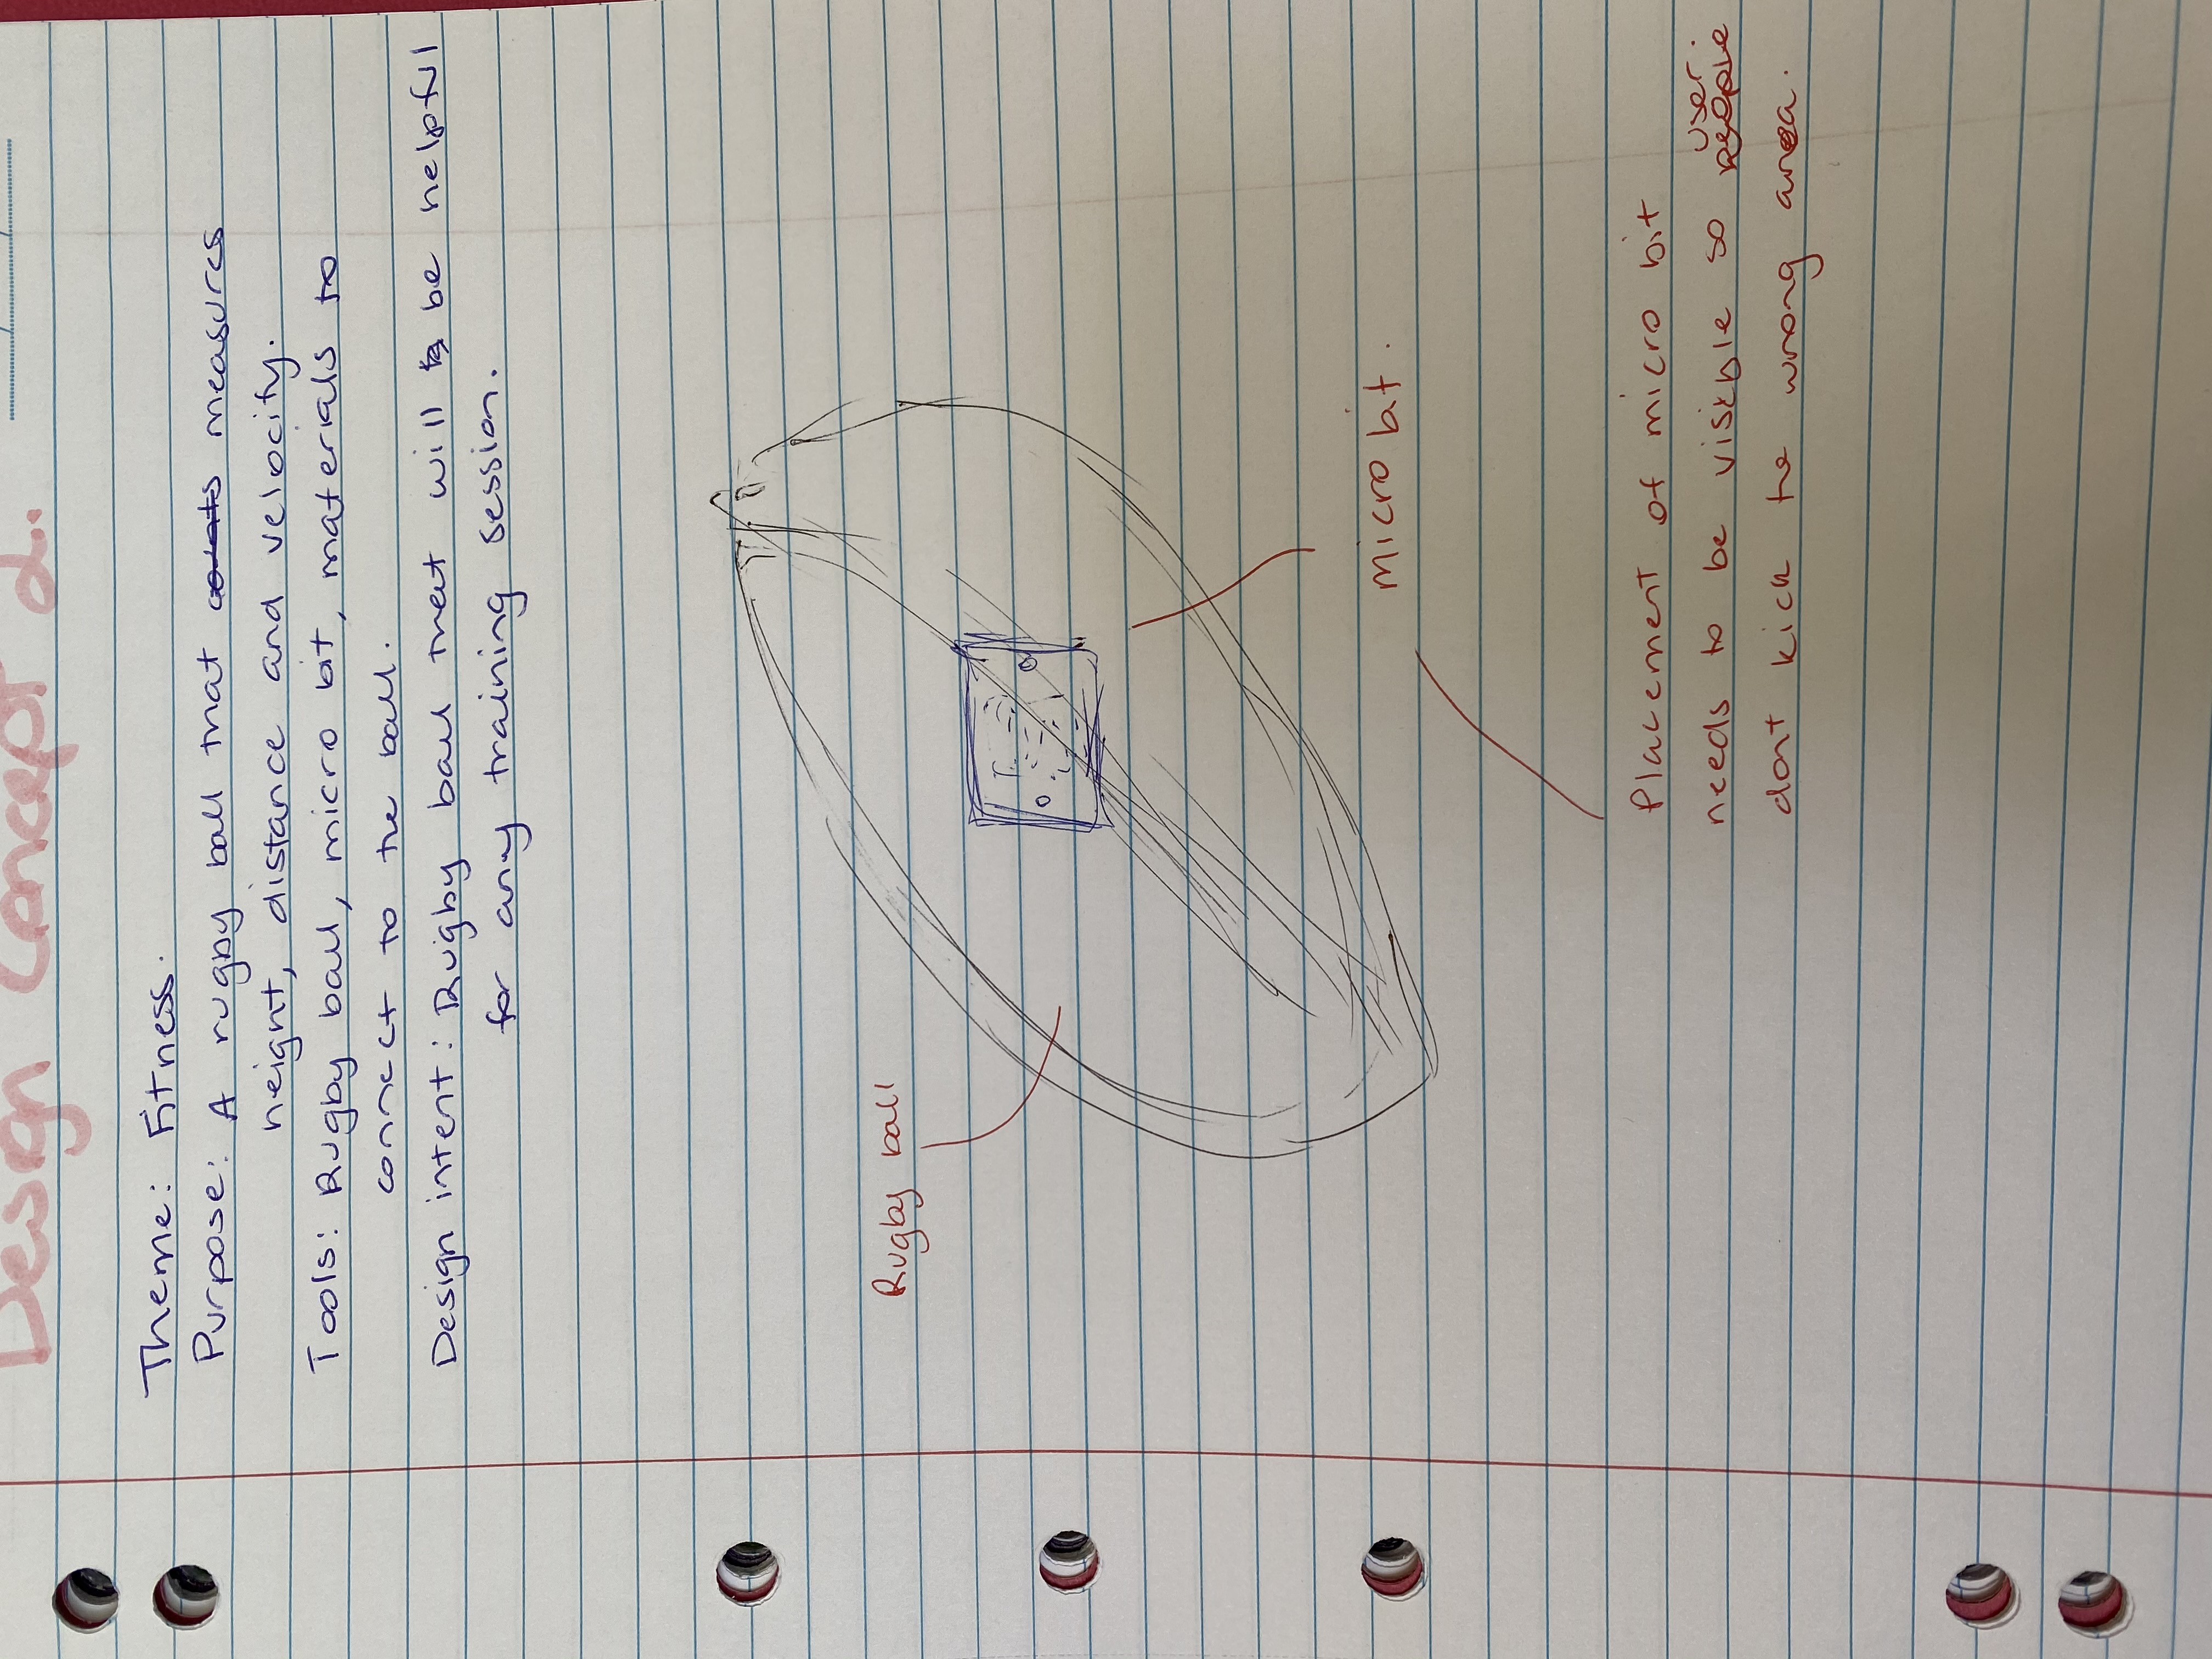 Design Concept 2.
Theme: Fitness.
Purpose: A rugby ball that counts measures
height, distance and velocity.
Tools: Rugby ball, micro bit, materials to
connect to the ball.
Design intent: Rugby ball that will be helpful
for any training session.
Rugby ball
micro bit.
Placement of micro bit
user.
needs to be visible so people
dont kick the wrong area.